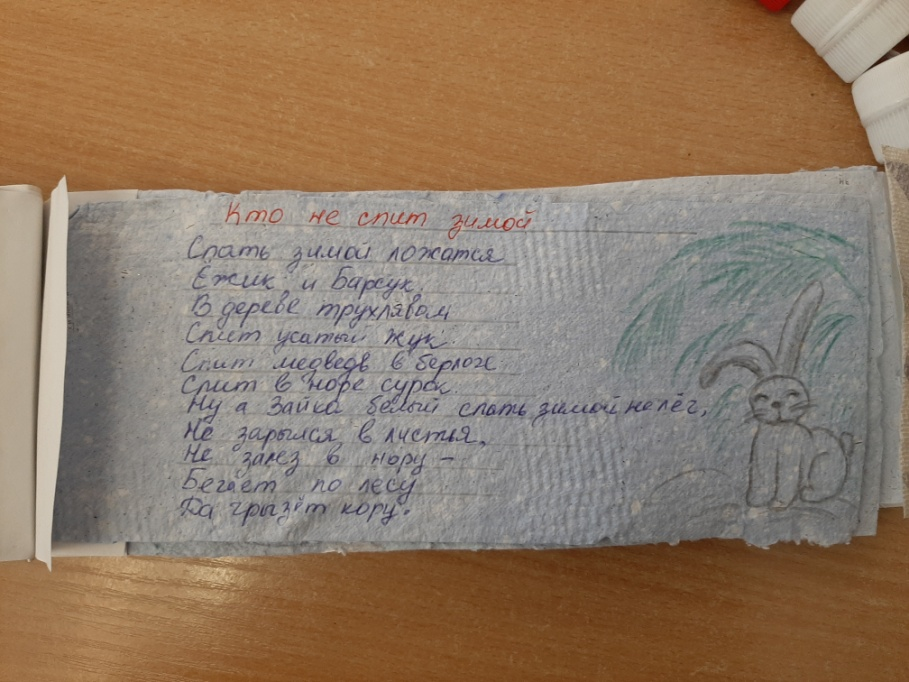 Кто не спит зимой
Спать зимой ложатся
Ёжик и Барсук.
В дереве трухлявом
Спит усатый Жук.
Спит медведь в берлоге
Спит в норе сурок.
Ну а Зайка белый спать зимой не лёг,
Не зарылся в листья,
Не залез в нору –
Бегает по лесу
Да грызёт кору.